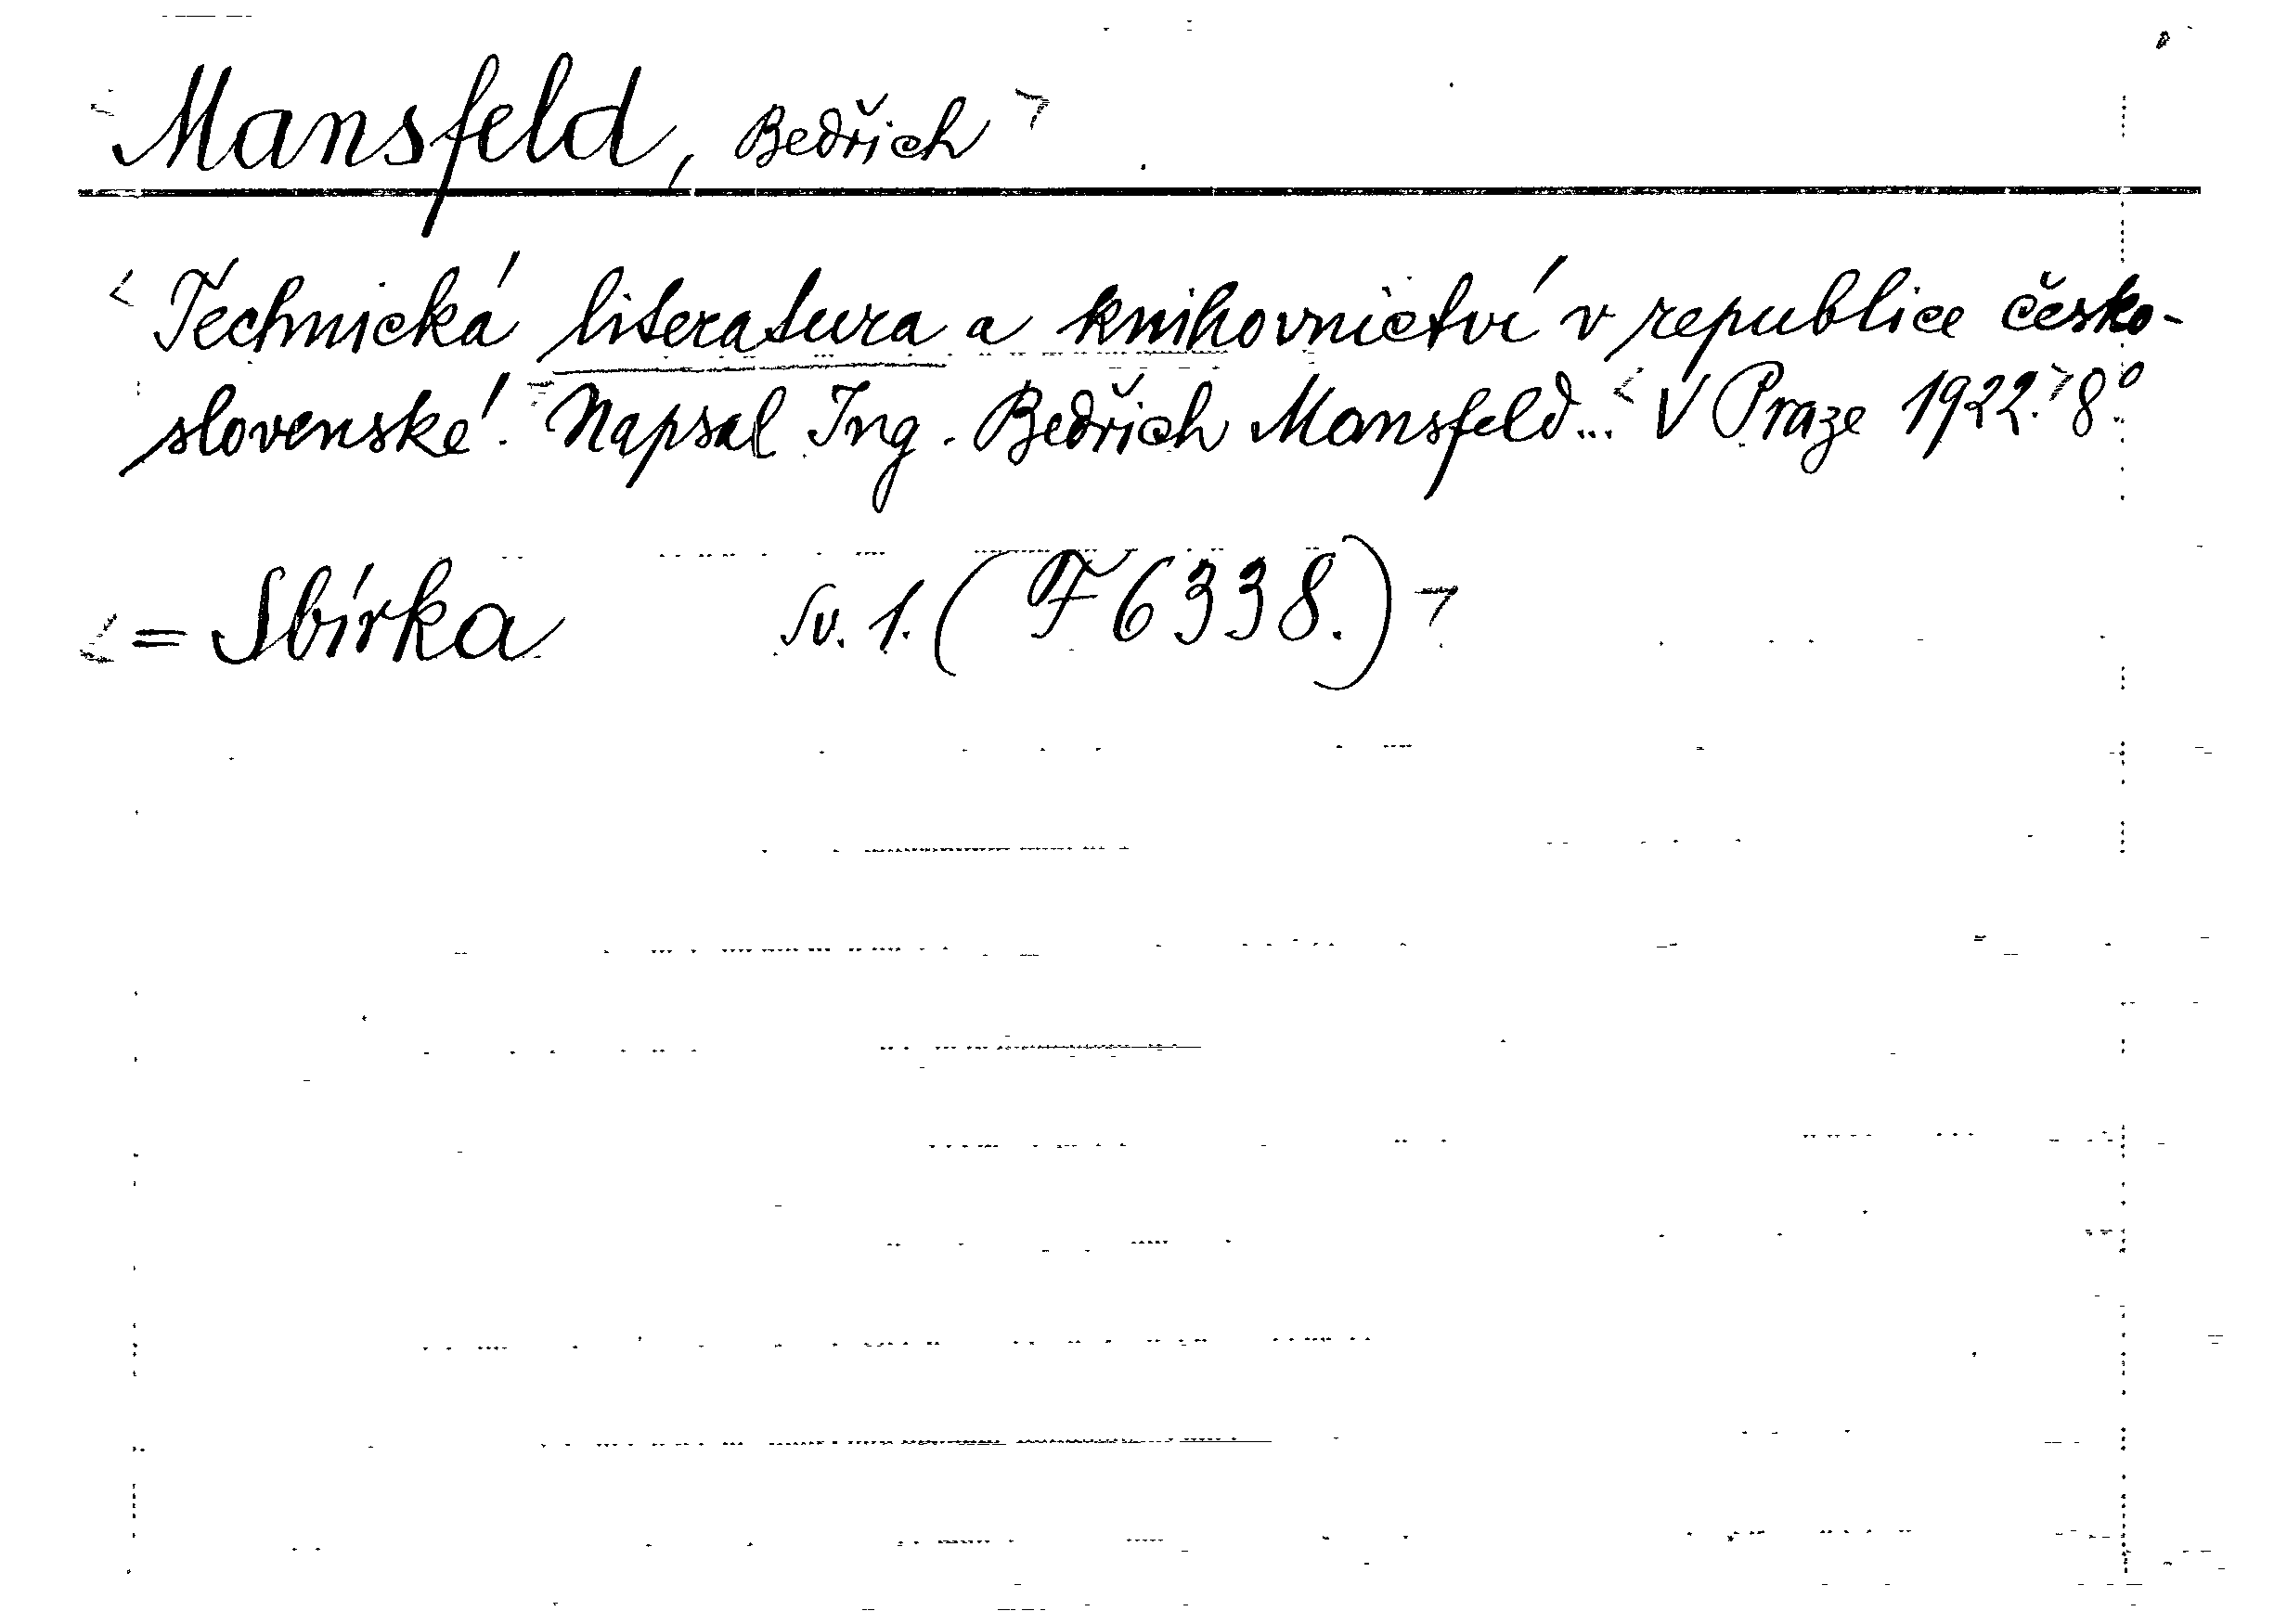 Mansfeld, Bedřich
Technická literatura a knihovnictví v republice česko-
slovenské. Napsal Ing. Bedřich Mansfeld... V Praze 1922. 8°.
= Sbírka sv. 1. (F 6338.)